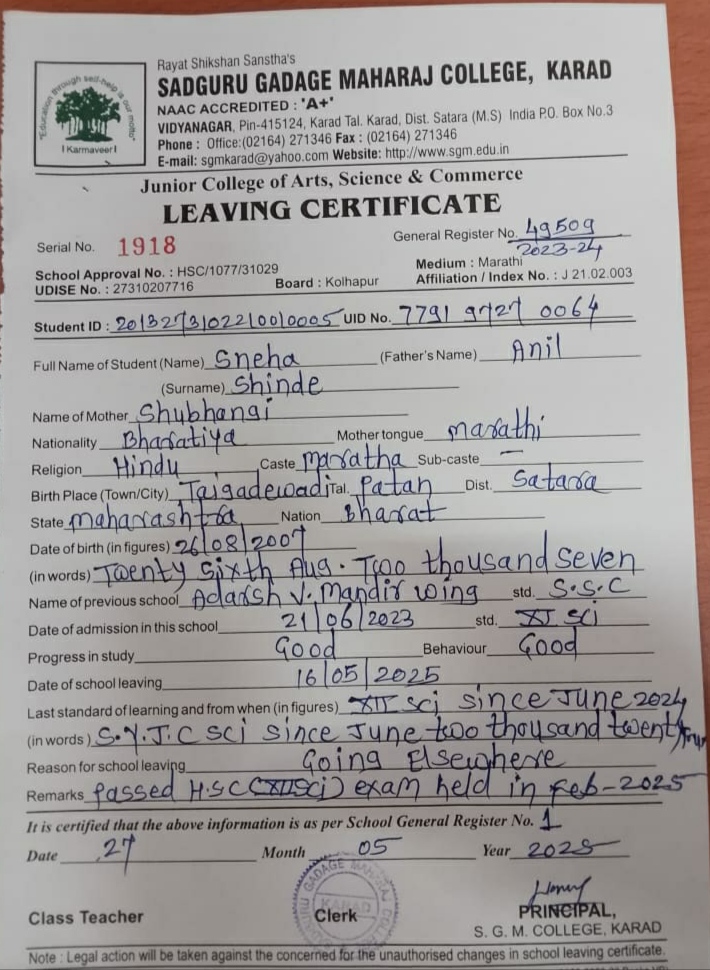 Rayat Shikshan Sanstha's
SADGURU GADAGE MAHARAJ COLLEGE, KARAD
NAAC ACCREDITED : 'A+'
VIDYANAGAR, Pin-415124, Karad Tal. Karad, Dist. Satara (M.S) India P.O. Box No.3
Phone : Office:(02164) 271346 Fax : (02164) 271346
E-mail: sgmkarad@yahoo.com Website: http://www.sgm.edu.in
"Education through self-help is our motto"
Karmaveer
Junior College of Arts, Science & Commerce
LEAVING CERTIFICATE
Serial No. 1918 General Register No. 49509
2023-24
School Approval No. : HSC/1077/31029 Medium : Marathi
UDISE No. : 27310207716 Board : Kolhapur Affiliation / Index No. : J 21.02.003
Student ID : UID No. 7791 9727 0064
Full Name of Student (Name) Sneha (Father's Name) Anil
(Surname) Shinde
Name of Mother Shubhangi
Nationality Bharatiya Mother tongue marathi
Religion Hindu Caste maratha Sub-caste —
Birth Place (Town/City) Taigadewadi Tal. Patan Dist. Satara
State maharashtra Nation Bharat
Date of birth (in figures) 26/08/2007
(in words) Twenty sixth Aug. Two thousand seven
Name of previous school Adarsh V. Mandir wing std. S.S.C
Date of admission in this school 21/06/2023 std. XI sci
Progress in study Good Behaviour Good
Date of school leaving 16/05/2025
Last standard of learning and from when (in figures) XII sci since June 2024
(in words) S.Y.J.C sci since June two thousand twenty four
Reason for school leaving Going Elsewhere
Remarks Passed H.SC (XII sci) exam held in Feb-2025
It is certified that the above information is as per School General Register No. 1
Date 27 Month 05 Year 2025
SADGURU GADAGE MAHARAJ COLLEGE
KARAD
Class Teacher Clerk PRINCIPAL,
S. G. M. COLLEGE, KARAD
Note : Legal action will be taken against the concerned for the unauthorised changes in school leaving certificate.